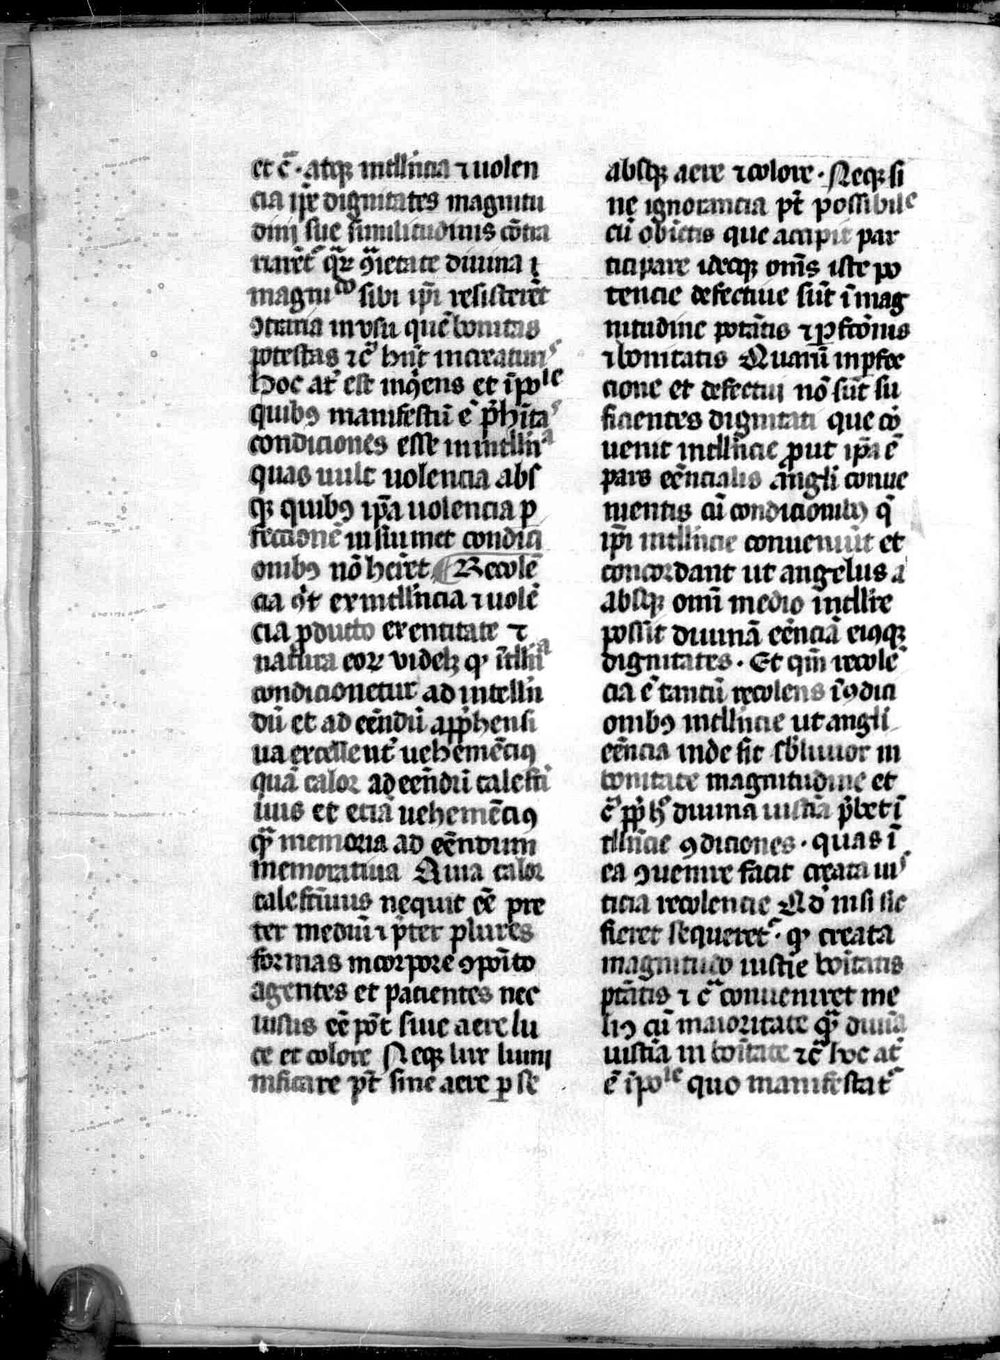 et c̄. atq̄ intll̄ncia ⁊ uolen
cia ip̄e dignitates magnitu
dini sue similitudinis cōtra
riarēt̄ q̄ꝛ ꝯ̄ietate diuina ī
magnitᵈᵒ sibi ip̄i resisteret
ꝯtraria in vsu quē bonitas
potestas ⁊ c̄ hn̄t increatur̄
hoc at̄ est inꝯ̄iens et īpoˡᵉ
quibꝯ manifestū ē p̄hīta
condiciones esse in intll̄nᵃ
quas uult uolencia abs
qꝫ quibꝯ ip̄a uolencia p̱
fectionē in sui met condici
onibꝯ nō heret̄ Recolē
cia ē ex intll̄ncia ⁊ uolē
cia ꝓducto ex entitate ⁊
natura eoꝝ videlꝫ qꝫ ītll̄nᵃ
condicionetur ad intelln̄
dū et ad eēndū app̄hensi
ua excellent̄ vehemēciꝯ
quā calor ad eēndū calefti
uus et eciā uehemēciꝯ
qᷓ memoria ad eēndum
memoratiua Quia calor
calefctiuus nequit eē pre
ter mediū ⁊ p̄ter plures
formas in corpore ꝯpoīto
agentes et pacientes nec
uisus eē pōt siue aere lu
ce et colore Neqꝫ lux lumi
nificare pt̄ sine aere ꝑ se
absqꝫ aere ⁊ colore. Neqꝫ si
ne ignorancia pt̄ possibile
cū obiectis que accipit par
ticipare ideoqꝫ om̄s iste po
tencie defectiue sūt ī mag
nitudine potātis ⁊ ꝑfcōnis
⁊ bonitatis Quarū inꝑfec
cione et defectui nō sūt su
ficientes dignitati que cō
uenit intll̄ncie ꝓut ip̄a ē
pars eēncialis āngli conue
nientis cū condicionibꝯ q̄
ip̄i intll̄ncie conueniūt et
concordant ut angelus a
absqꝫ omī medio intllḡe
possit diuinā eēnciā eiusqꝫ
dignitates. Et qm̄ recolē
cia ē tantū recolens ī ꝯdici
onibꝯ intll̄ncie ut angli
eēncia inde fit sb̄limior in
bonitate magnitudine et
c̄ ꝓpt̄ h̄ diuina iusticia p̄bet ī
tll̄ncie ꝯdiciones. quas ī
ea ꝯuenire facit creata ius
ticia recolencie Nā nisi sic
fieret sequeret̄. qꝫ creata
magnitudo iustie boītatis
ptātis ⁊ c̄ conueniret me
liꝯ cū maioritate qᷓ diuīa
iustīa in boītate ⁊c̄ hoc at̄
ē īpoˡᵉ quo manifestat̄